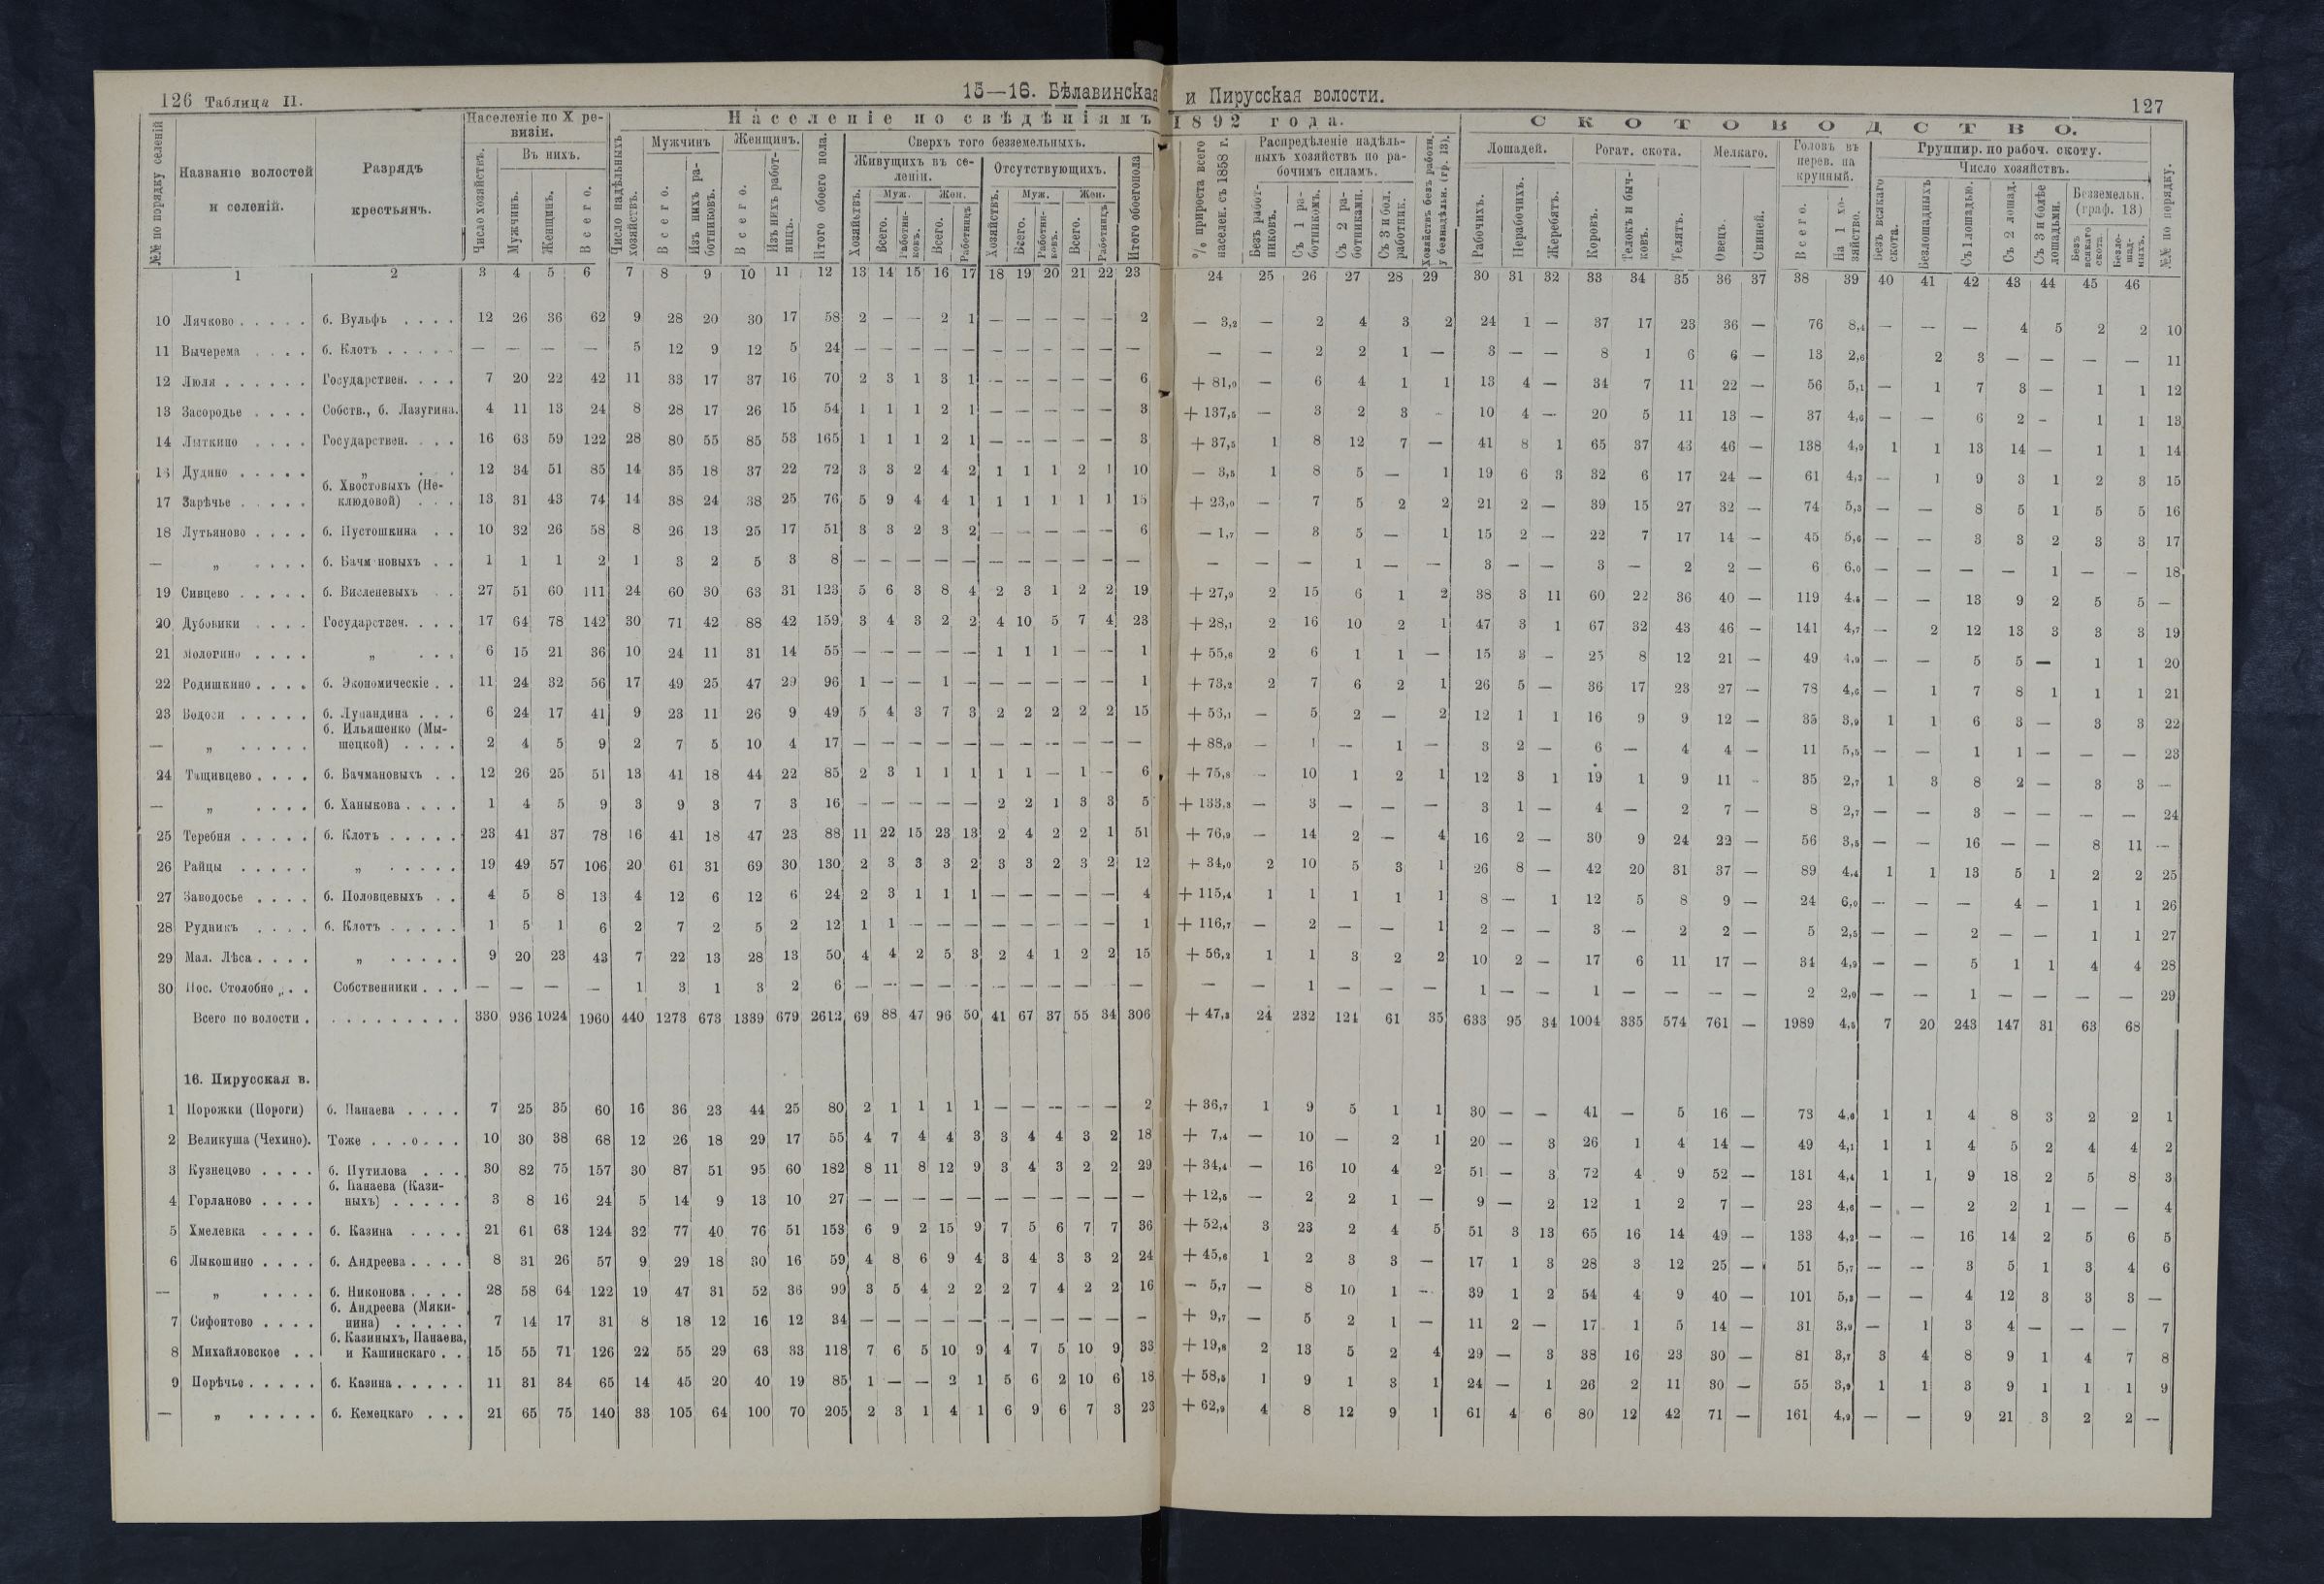 126 Таблица II.
15—16. Бѣлавинская и Пирусская волости.
127
№№ по порядку селеній
Названіе волостей и селеній.
Разрядъ крестьянъ.
Населеніе по X ревизіи.
Число хозяйствъ.
Въ нихъ.
Мужчинъ.
Женщинъ.
Всего.
Населеніе по свѣдѣніямъ 1892 года.
Число надѣльныхъ хозяйствъ.
Мужчинъ
Всего.
Изъ нихъ работниковъ.
Женщинъ.
Всего.
Изъ нихъ работницъ.
Итого обоего пола.
Сверхъ того безземельныхъ.
Живущихъ въ селеніи.
Хозяйствъ.
Муж.
Всего.
Работниковъ.
Жен.
Всего.
Работницъ
Отсутствующихъ.
Хозяйствъ.
Муж.
Всего.
Работниковъ.
Жен.
Всего.
Работницъ
Итого обоего пола
% прироста всего населен. съ 1858 г.
Распредѣленіе надѣльныхъ хозяйствъ по рабочимъ силамъ.
Безъ работниковъ.
Съ 1 работникомъ.
Съ 2 работниками.
Съ 3 и бол. работник.
Хозяйствъ безъ работн. у безнадѣльн. (гр. 13).
СКОТОВОДСТВО.
Лошадей.
Рабочихъ.
Нерабочихъ.
Жеребятъ.
Рогат. скота.
Коровъ.
Телокъ и бычковъ.
Телятъ.
Мелкаго.
Овецъ.
Свиней.
Головъ въ перев. на крупный.
Всего.
На 1 хозяйство.
Группир. по рабоч. скоту.
Число хозяйствъ.
Безъ всякаго скота.
Безлошадныхъ
Съ 1 лошадью.
Съ 2 лошад.
Съ 3 и болѣе лошадьми.
Безземельн. (граф. 13)
Безъ всякаго скота
Безлошадныхъ.
№№ по порядку.
1 2 3 4 5 6 7 8 9 10 11 12 13 14 15 16 17 18 19 20 21 22 23 24 25 26 27 28 29 30 31 32 33 34 35 36 37 38 39 40 41 42 43 44 45 46
10 Лячково . . . . . б. Вульфъ . . . . 12 26 36 62 9 28 20 30 17 58 2 — — 2 1 — — — — — 2 — 3,2 — 2 4 3 2 24 1 — 37 17 23 36 — 76 8,4 — — — 4 5 2 2 10
11 Вычерема . . . . б. Клотъ . . . . . — — — — 5 12 9 12 5 24 — — — — — — — — — — — — — 2 2 1 — 3 — — 8 1 6 6 — 13 2,6 2 3 — — — — 11
12 Люля . . . . . . Государствен. . . . 7 20 22 42 11 33 17 37 16 70 2 3 1 3 1 — — — — — 6 + 81,0 — 6 4 1 1 13 4 — 34 7 11 22 — 56 5,1 — 1 7 3 — 1 1 12
13 Засородье . . . . Собств., б. Лазугина. 4 11 13 24 8 28 17 26 15 54 1 1 1 2 1 — — — — — 3 + 137,5 — 3 2 3 - 10 4 — 20 5 11 13 — 37 4,6 — — 6 2 - 1 1 13
14 Лыткино . . . . Государствен. . . . 16 63 59 122 28 80 55 85 53 165 1 1 1 2 1 — — — — — 3 + 37,5 1 8 12 7 — 41 8 1 65 37 43 46 — 138 4,9 1 1 13 14 — 1 1 14
15 Дудино . . . . . „ . . 12 34 51 85 14 35 18 37 22 72 3 3 2 4 2 1 1 1 2 1 10 — 3,5 1 8 5 — 1 19 6 3 32 6 17 24 — 61 4,3 — 1 9 3 1 2 3 15
17 Зарѣчье . . . . . б. Хвостовыхъ (Неклюдовой) . . . 13 31 43 74 14 38 24 38 25 76 5 9 4 4 1 1 1 1 1 1 15 + 23,0 — 7 5 2 2 21 2 — 39 15 27 32 — 74 5,3 — — 8 5 1 5 5 16
18 Лутьяново . . . . б. Пустошкина . . 10 32 26 58 8 26 13 25 17 51 3 3 2 3 2 — — — — — 6 — 1,7 — 3 5 — 1 15 2 — 22 7 17 14 — 45 5,6 — — 3 3 2 3 3 17
— „ . . . . б. Бачм новыхъ . . 1 1 1 2 1 3 2 5 3 8 — — — — — — — — — — — — — — 1 — — 3 — — 3 — 2 2 — 6 6,0 — — — — 1 — — 18
19 Сивцево . . . . . б. Висленевыхъ . . 27 51 60 111 24 60 30 63 31 123 5 6 3 8 4 2 3 1 2 2 19 + 27,9 2 15 6 1 2 38 3 11 60 22 36 40 — 119 4,8 — — 13 9 2 5 5 —
20 Дубовики . . . . Государствен. . . . 17 64 78 142 30 71 42 88 42 159 3 4 3 2 2 4 10 5 7 4 23 + 28,1 2 16 10 2 1 47 3 1 67 32 43 46 — 141 4,7 — 2 12 13 3 3 3 19
21 Мологино . . . . „ . . . 6 15 21 36 10 24 11 31 14 55 — — — — — 1 1 1 — — 1 + 55,6 2 6 1 1 — 15 3 - 25 8 12 21 — 49 4,9 — — 5 5 — 1 1 20
22 Родишкино . . . . б. Экономическіе . . 11 24 32 56 17 49 25 47 29 96 1 — — 1 — — — — — — 1 + 73,2 2 7 6 2 1 26 5 — 36 17 23 27 — 78 4,6 — 1 7 8 1 1 1 21
23 Водоси . . . . . б. Лупандина . . . 6 24 17 41 9 23 11 26 9 49 5 4 3 7 3 2 2 2 2 2 15 + 56,1 — 5 2 — 2 12 1 1 16 9 9 12 — 35 3,9 1 1 6 3 — 3 3 22
— „ . . . . . б. Ильяшенко (Мышецкой) . . . . 2 4 5 9 2 7 5 10 4 17 — — — — — — — — — — — + 88,9 — 1 — 1 — 3 2 — 6 — 4 4 — 11 5,5 — — 1 1 — — — 23
24 Тащивцево . . . . б. Бачмановыхъ . . 12 26 25 51 13 41 18 44 22 85 2 3 1 1 1 1 1 — 1 - 6 + 75,8 - 10 1 2 1 12 3 1 19 1 9 11 - 35 2,7 1 3 8 2 — 3 3 —
— „ . . . . б. Ханыкова . . . . 1 4 5 9 3 9 3 7 3 16 — — — — — 2 2 1 3 3 5 + 133,3 — 3 — — — 3 1 — 4 — 2 7 — 8 2,7 — — 3 — — — — 24
25 Теребня . . . . . б. Клотъ . . . . . 23 41 37 78 16 41 18 47 23 88 11 22 15 23 13 2 4 2 2 1 51 + 76,9 — 14 2 — 4 16 2 — 30 9 24 22 — 56 3,5 — — 16 — — 8 11 —
26 Райцы . . . . . „ . . . . . 19 49 57 106 20 61 31 69 30 130 2 3 3 3 2 3 3 2 3 2 12 + 34,0 2 10 5 3 1 26 8 — 42 20 31 37 — 89 4,4 1 1 13 5 1 2 2 25
27 Заводосье . . . . б. Половцевыхъ . . 4 5 8 13 4 12 6 12 6 24 2 3 1 1 1 — — — — — 4 + 115,4 1 1 1 1 1 8 — 1 12 5 8 9 — 24 6,0 — — — 4 — 1 1 26
28 Рудникъ . . . . б. Клотъ . . . . . 1 5 1 6 2 7 2 5 2 12 1 1 — — — — — — — — 1 + 116,7 — 2 — — 1 2 — — 3 — 2 2 — 5 2,5 — — 2 — — 1 1 27
29 Мал. Лѣса . . . . „ . . . . . 9 20 23 43 7 22 13 28 13 50 4 4 2 5 3 2 4 1 2 2 15 + 56,2 1 1 3 2 2 10 2 — 17 6 11 17 — 34 4,9 — — 5 1 1 4 4 28
30 Пос. Столобно . . . Собственники . . . — — — — 1 3 1 3 2 6 — — — — — — — — — — — — — 1 — — — 1 — — 1 — — — — 2 2,0 — — 1 — — — — 29
Всего по волости . . . . . . . . . . 330 936 1024 1960 440 1273 673 1339 679 2612 69 88 47 96 50 41 67 37 55 34 306 + 47,3 24 232 121 61 35 633 95 34 1004 335 574 761 — 1989 4,5 7 20 243 147 31 63 68
16. Пирусская в.
1 Порожки (Пороги) б. Панаева . . . . 7 25 35 60 16 36 23 44 25 80 2 1 1 1 1 — — — — — 2 + 36,7 1 9 5 1 1 30 — — 41 — 5 16 — 73 4,6 1 1 4 8 3 2 2 1
2 Великуша (Чехино). Тоже . . . о . . . 10 30 38 68 12 26 18 29 17 55 4 7 4 4 3 3 4 4 3 2 18 + 7,4 — 10 — 2 1 20 — 3 26 1 4 14 — 49 4,1 1 1 4 5 2 4 4 2
3 Кузнецово . . . . б. Путилова . . . 30 82 75 157 30 87 51 95 60 182 8 11 8 12 9 3 4 3 2 2 29 + 34,4 — 16 10 4 2 51 — 3 72 4 9 52 — 131 4,4 1 1 9 18 2 5 8 3
4 Горланово . . . . б. Панаева (Казиныхъ) . . . . . 3 8 16 24 5 14 9 13 10 27 — — — — — — — — — — — + 12,5 — 2 2 1 — 9 — 2 12 1 2 7 — 23 4,6 — — 2 2 1 — — 4
5 Хмелевка . . . . б. Казина . . . . 21 61 63 124 32 77 40 76 51 153 6 9 2 15 9 7 5 6 7 7 36 + 52,4 3 23 2 4 5 51 3 13 65 16 14 49 — 133 4,2 — — 16 14 2 5 6 5
6 Лыкошино . . . . б. Андреева . . . . 8 31 26 57 9 29 18 30 16 59 4 8 6 9 4 3 4 3 3 2 24 + 45,6 1 2 3 3 — 17 1 3 28 3 12 25 — 51 5,7 — — 3 5 1 3 4 6
— „ . . . . б. Никонова . . . . 28 58 64 122 19 47 31 52 36 99 3 5 4 2 2 2 7 4 2 2 16 — 5,7 — 8 10 1 — 39 1 2 54 4 9 40 — 101 5,3 — — 4 12 3 3 3 —
7 Сифонтово . . . . б. Андреева (Мякинина) . . . . . 7 14 17 31 8 18 12 16 12 34 — — — — — — — — — — — + 9,7 — 5 2 1 — 11 2 — 17 1 5 14 — 31 3,9 — 1 3 4 — — — 7
8 Михайловское . . б. Казиныхъ, Панаева, и Кашинскаго . . 15 55 71 126 22 55 29 63 33 118 7 6 5 10 9 4 7 5 10 9 33 + 19,8 2 13 5 2 4 29 — 3 38 16 23 30 — 81 3,7 3 4 8 9 1 4 7 8
9 Порѣчье . . . . . б. Казина . . . . . 11 31 34 65 14 45 20 40 19 85 1 — — 2 1 5 6 2 10 6 18 + 58,5 1 9 1 3 1 24 — 1 26 2 11 30 — 55 3,9 1 1 3 9 1 1 1 9
— „ . . . . . б. Кемецкаго . . . 21 65 75 140 33 105 64 100 70 205 2 3 1 4 1 6 9 6 7 3 23 + 62,9 4 8 12 9 1 61 4 6 80 12 42 71 — 161 4,9 — — 9 21 3 2 2 —